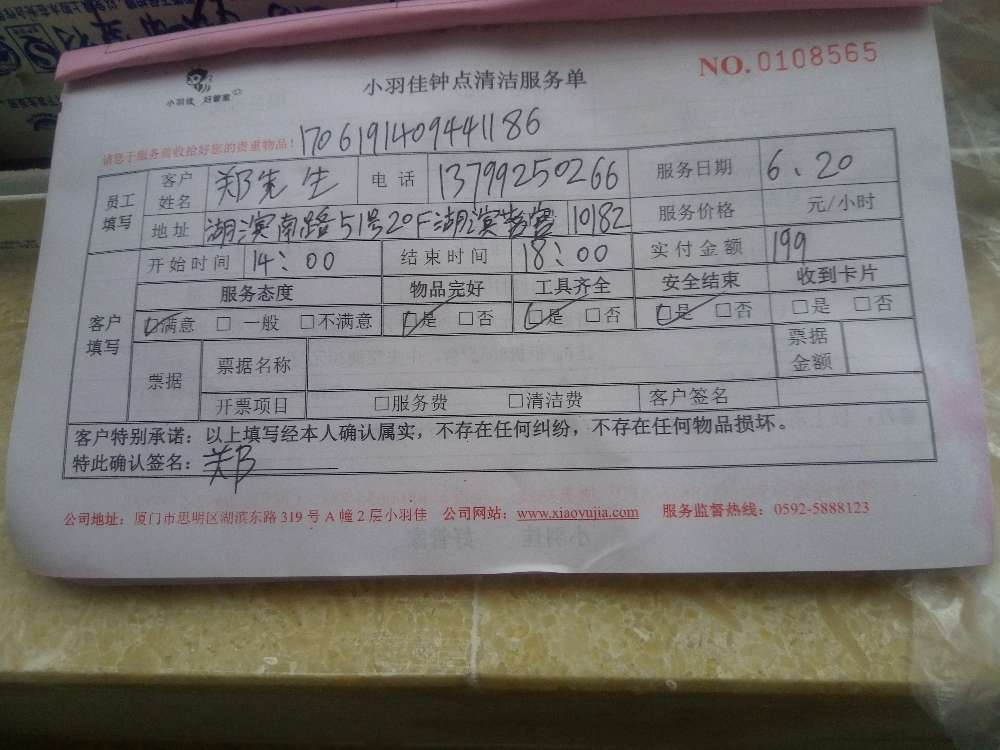 小羽佳 好管家
小羽佳钟点清洁服务单
NO.0108565
请您于服务前收拾好您的贵重物品！
1706191409441186
员工填写 客户姓名 郑先生 电话 13799250266 服务日期 6.20
地址 湖滨南路51号20F湖滨 10182 服务价格 元/小时
客户填写 开始时间 14：00 结束时间 18：00 实付金额 199
服务态度 物品完好 工具齐全 安全结束 收到卡片
☑满意 □一般 □不满意 ☑是 □否 ☑是 □否 ☑是 □否 □是 □否
票据 票据名称 票据金额
开票项目 □服务费 □清洁费 客户签名
客户特别承诺：以上填写经本人确认属实，不存在任何纠纷，不存在任何物品损坏。
特此确认签名：郑
公司地址：厦门市思明区湖滨东路319号A幢2层小羽佳 公司网站：www.xiaoyujia.com 服务监督热线：0592-5888123